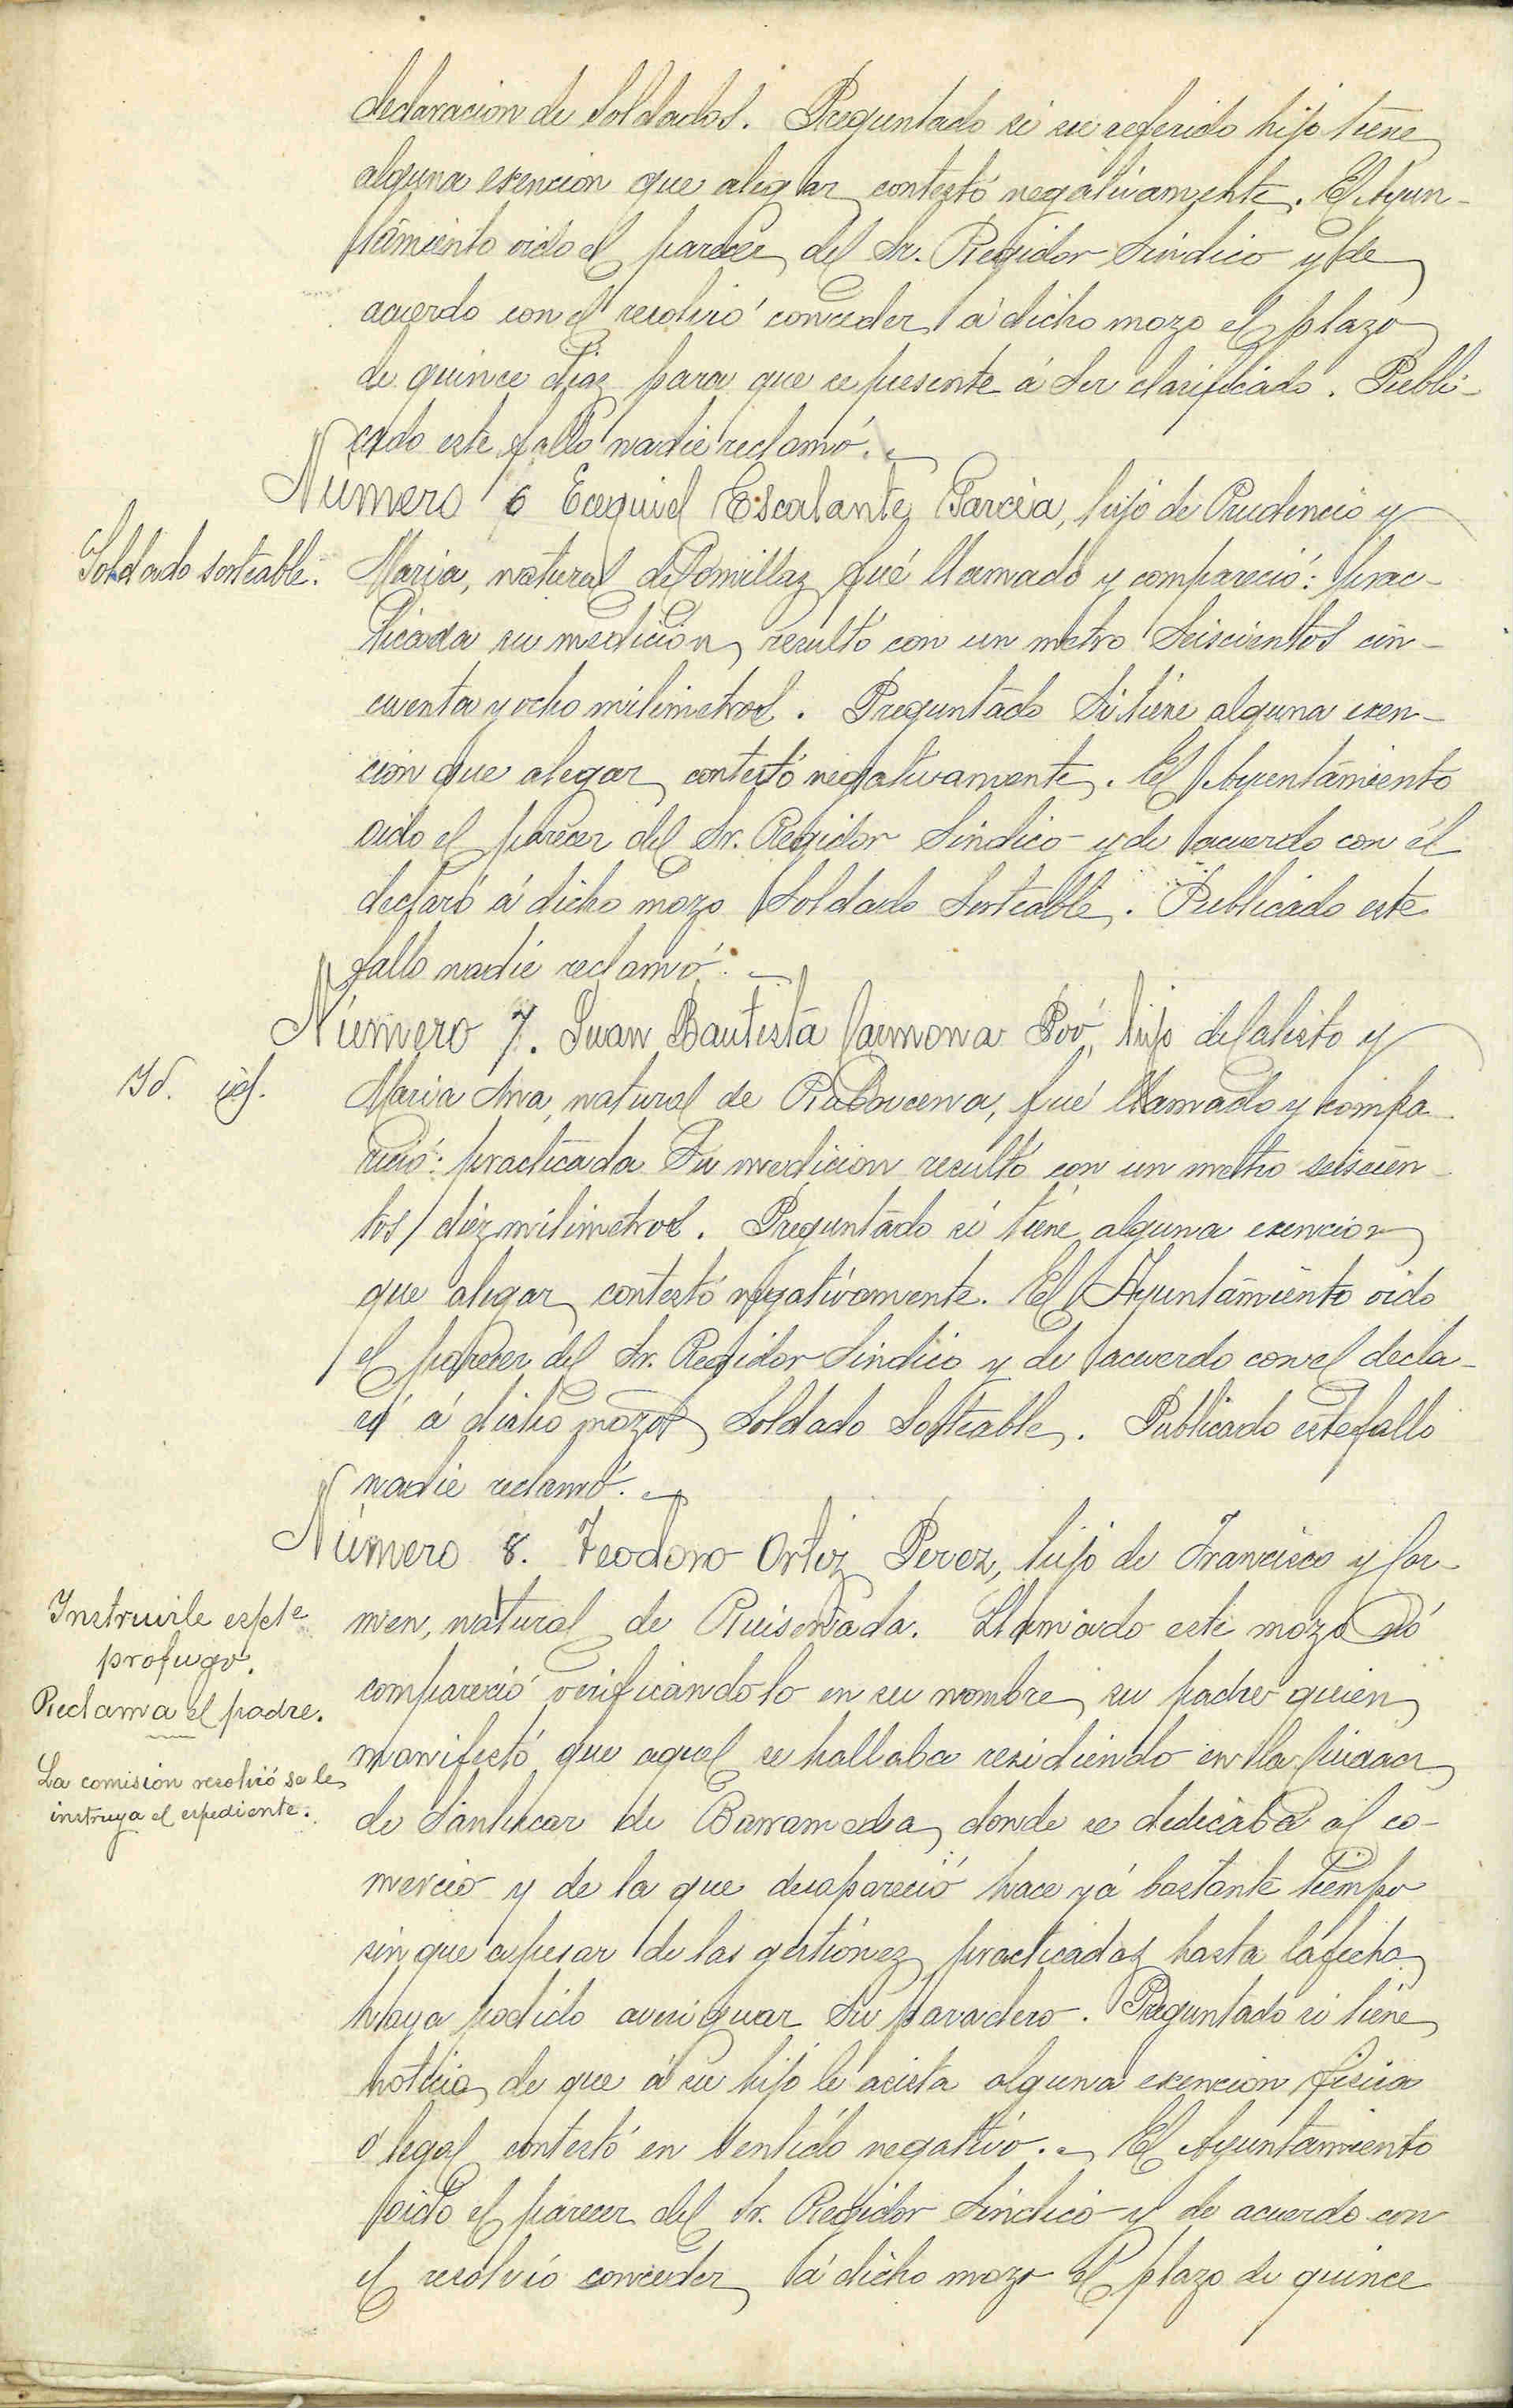 declaracion de Soldados. Preguntado si su referido hijo tiene
alguna exencion que alegar contestó negativamente. El Ayun-
tamiento oido el parecer del Sr. Regidor Sindico y de
acuerdo con el resolvió conceder á dicho mozo el plazo
de quince dias para que se presente á ser clasificado. Publi-
cado este fallo nadie reclamó.
Número 6 Ecequiel Escalante Garcia, hijo de Prudencio y
Soldado sorteable.
Maria, natural de Comillas fué llamado y compareció: prac-
ticada su medicion resultó con un metro Seiscientos cin-
cuenta y ocho milimetros. Preguntado Si tiene alguna exen-
cion que alegar contestó negativamente. El Ayuntamiento
oido el parecer del Sr. Regidor Sindico y de acuerdo con él
declaró á dicho mozo Soldado Sorteable. Publicado este
fallo nadie reclamó.
Número 7. Juan Bautista Carmona Poó, hijo de Calisto y
Id. id.
Maria Ana, natural de Rubarcena, fué llamado y compa-
reció: practicada Su medicion resultó con un metro seiscien-
tos diez milimetros. Preguntado si tiene alguna exencion
que alegar contestó negativamente. El Ayuntamiento oido
el parecer del Sr. Regidor Sindico y de acuerdo con el decla-
ró á dicho mozo Soldado Sorteable. Publicado este fallo
nadie reclamó.
Número 8. Teodoro Ortiz Perez, hijo de Francisco y Car-
men, natural de Ruiseñada. Llamado este mozo nó
Instruirle espte
profugo.
Reclama el padre.
La comisión resolvió se le
instruya el espediente.
compareció verificandolo en su nombre su padre quien
manifestó que aquel se hallaba residiendo en la Ciudad
de Sanlucar de Barrameda donde se dedicaba al co-
mercio y de la que desapareció hace yá bastante tiempo
sin que apesar de las gestiones practicadas hasta la fecha
haya podido averiguar Su paradero. Preguntado si tiene
noticia de que á su hijo le asista alguna exencion fisica
ó legal contestó en sentido negativo. El Ayuntamiento
oido el parecer del Sr. Regidor Sindico y de acuerdo con
el resolvió conceder á dicho mozo el plazo de quince